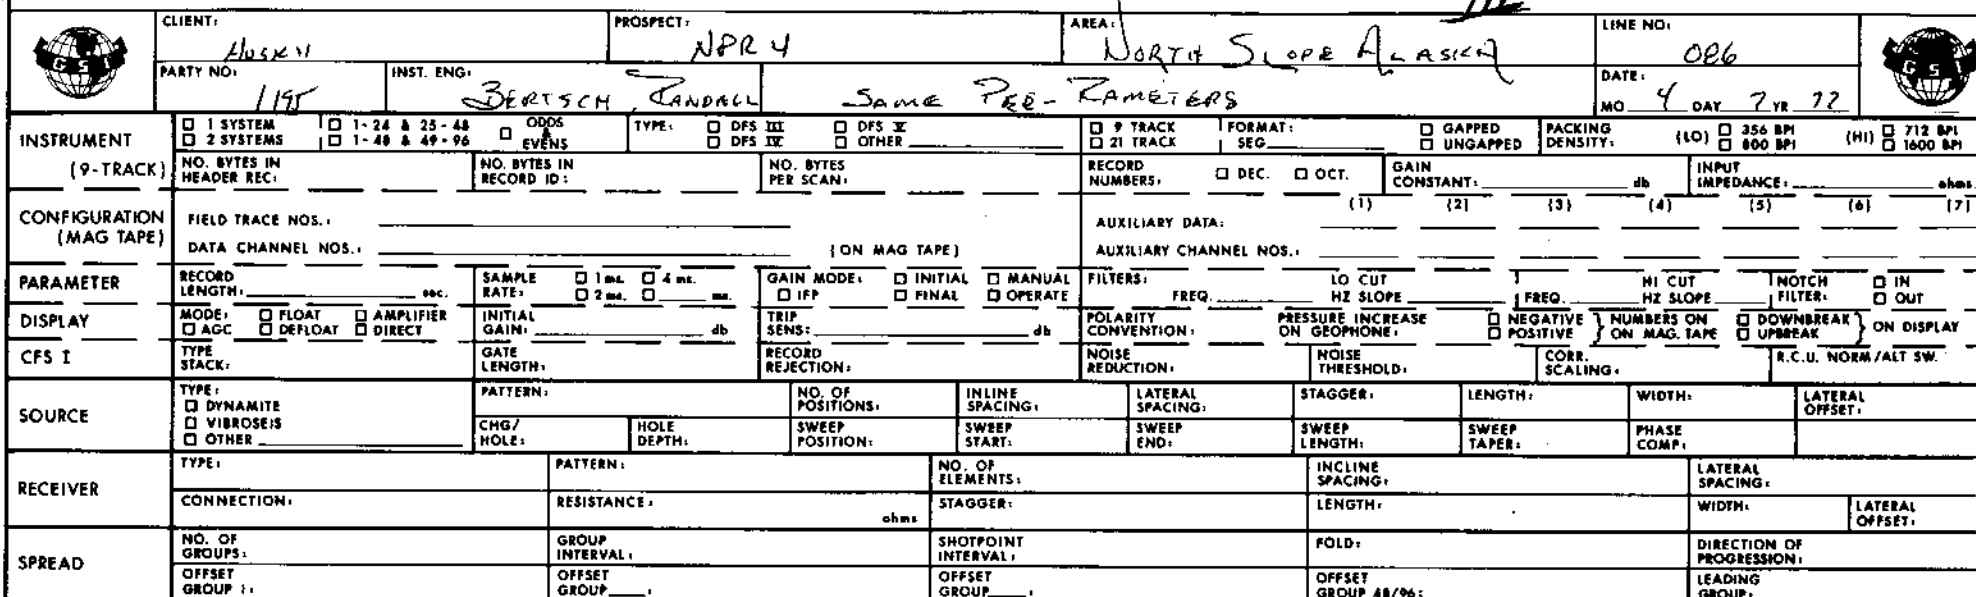 CLIENT: PROSPECT: AREA: LINE NO:
HUSKY NPR 4 NORTH SLOPE ALASKA 086
GSI GSI
PARTY NO: INST. ENG: DATE:
1195 BERTSCH, RANDALL SAME PEE-RAMETERS MO 4 DAY 7 YR 77
INSTRUMENT (9-TRACK)
☐ 1 SYSTEM ☐ 1-24 & 25-48 ☐ ODDS & EVENS TYPE: ☐ DFS III ☐ DFS V ☐ 9 TRACK FORMAT: ☐ GAPPED PACKING DENSITY: (LO) ☐ 356 BPI (HI) ☐ 712 BPI
☐ 2 SYSTEMS ☐ 1-48 & 49-96 ☐ DFS IV ☐ OTHER ☐ 21 TRACK SEG ☐ UNGAPPED ☐ 800 BPI ☐ 1600 BPI
NO. BYTES IN HEADER REC: NO. BYTES IN RECORD ID: NO. BYTES PER SCAN: RECORD NUMBERS: ☐ DEC. ☐ OCT. GAIN CONSTANT: db INPUT IMPEDANCE: ohms
CONFIGURATION (MAG TAPE)
FIELD TRACE NOS.: AUXILIARY DATA: (1) (2) (3) (4) (5) (6) (7)
DATA CHANNEL NOS.: (ON MAG TAPE) AUXILIARY CHANNEL NOS.:
PARAMETER
RECORD LENGTH: sec. SAMPLE RATE: ☐ 1 ms. ☐ 4 ms. ☐ 2 ms. ☐ ms. GAIN MODE: ☐ INITIAL ☐ MANUAL ☐ IFP ☐ FINAL ☐ OPERATE FILTERS: LO CUT FREQ. HZ SLOPE HI CUT FREQ. HZ SLOPE NOTCH FILTER: ☐ IN ☐ OUT
DISPLAY
MODE: ☐ FLOAT ☐ AMPLIFIER ☐ AGC ☐ DEFLOAT ☐ DIRECT INITIAL GAIN: db TRIP SENS: db POLARITY CONVENTION: PRESSURE INCREASE ON GEOPHONE: ☐ NEGATIVE ☐ POSITIVE } NUMBERS ON ON MAG. TAPE ☐ DOWNBREAK ☐ UPBREAK } ON DISPLAY
CFS I
TYPE STACK: GATE LENGTH: RECORD REJECTION: NOISE REDUCTION: NOISE THRESHOLD: CORR. SCALING: R.C.U. NORM/ALT SW.
SOURCE
TYPE: ☐ DYNAMITE ☐ VIBROSEIS ☐ OTHER
PATTERN: NO. OF POSITIONS: INLINE SPACING: LATERAL SPACING: STAGGER: LENGTH: WIDTH: LATERAL OFFSET:
CHG/HOLE: HOLE DEPTH: SWEEP POSITION: SWEEP START: SWEEP END: SWEEP LENGTH: SWEEP TAPER: PHASE COMP:
RECEIVER
TYPE: PATTERN: NO. OF ELEMENTS: INCLINE SPACING: LATERAL SPACING:
CONNECTION: RESISTANCE: ohms STAGGER: LENGTH: WIDTH: LATERAL OFFSET:
SPREAD
NO. OF GROUPS: GROUP INTERVAL: SHOTPOINT INTERVAL: FOLD: DIRECTION OF PROGRESSION:
OFFSET GROUP 1: OFFSET GROUP : OFFSET GROUP : OFFSET GROUP 48/96: LEADING GROUP: